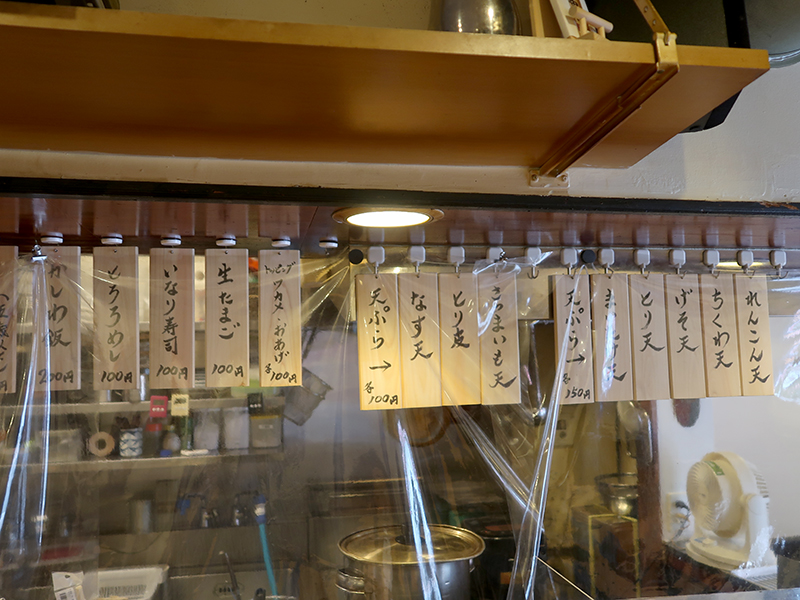 かしわ飯
200円
とろろめし
100円
いなり寿司
100円
生たまご
100円
トッピング
ワカメ・おあげ
各100円
天ぷら→
各100円
なす天
とり皮
さつまいも天
天ぷら→
各150円
とり天
げそ天
ちくわ天
れんこん天